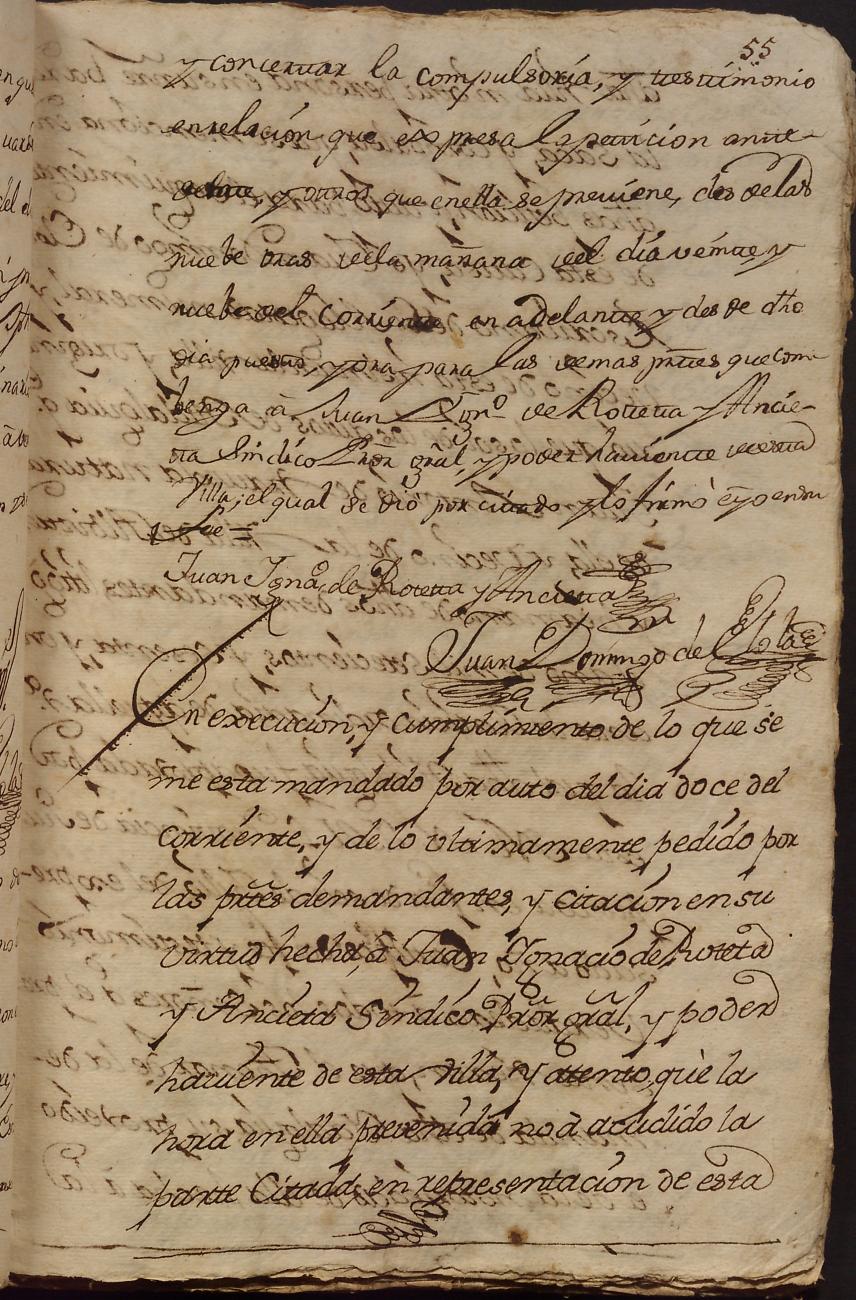 55
y concertar la compulsoria, y testimonio
en relación que expresa la petición ante-
y otros que en ella se previene, desde las
nuebe oras de la mañana del día veinte y
nuebe del Corriente en adelante y desde dho
dia puesto, y ora para las demas prtes que com-
benga à Juan Ygnº de Roteta y Ancie-
ta Sindico Pror gral y poder haviente de esta
Villa; el qual se dió por citado y lo firmó e yo en su
fe =
Juan Ignaº de Roteta y Ancieta
Juan Domingo de
En execución, y cumplimiento de lo que se
me esta mandado por auto del dia doce del
corriente, y de lo ultimamente pedido por
las prtes demandantes, y citación en su
virtud hecha, a Juan Ygnacio de Roteta
y Ancieta Síndico Pror gral, y poder
haviente de esta villa, y atento, què la
hora en ella prevenida no à acudido la
parte Citada, en representación de esta